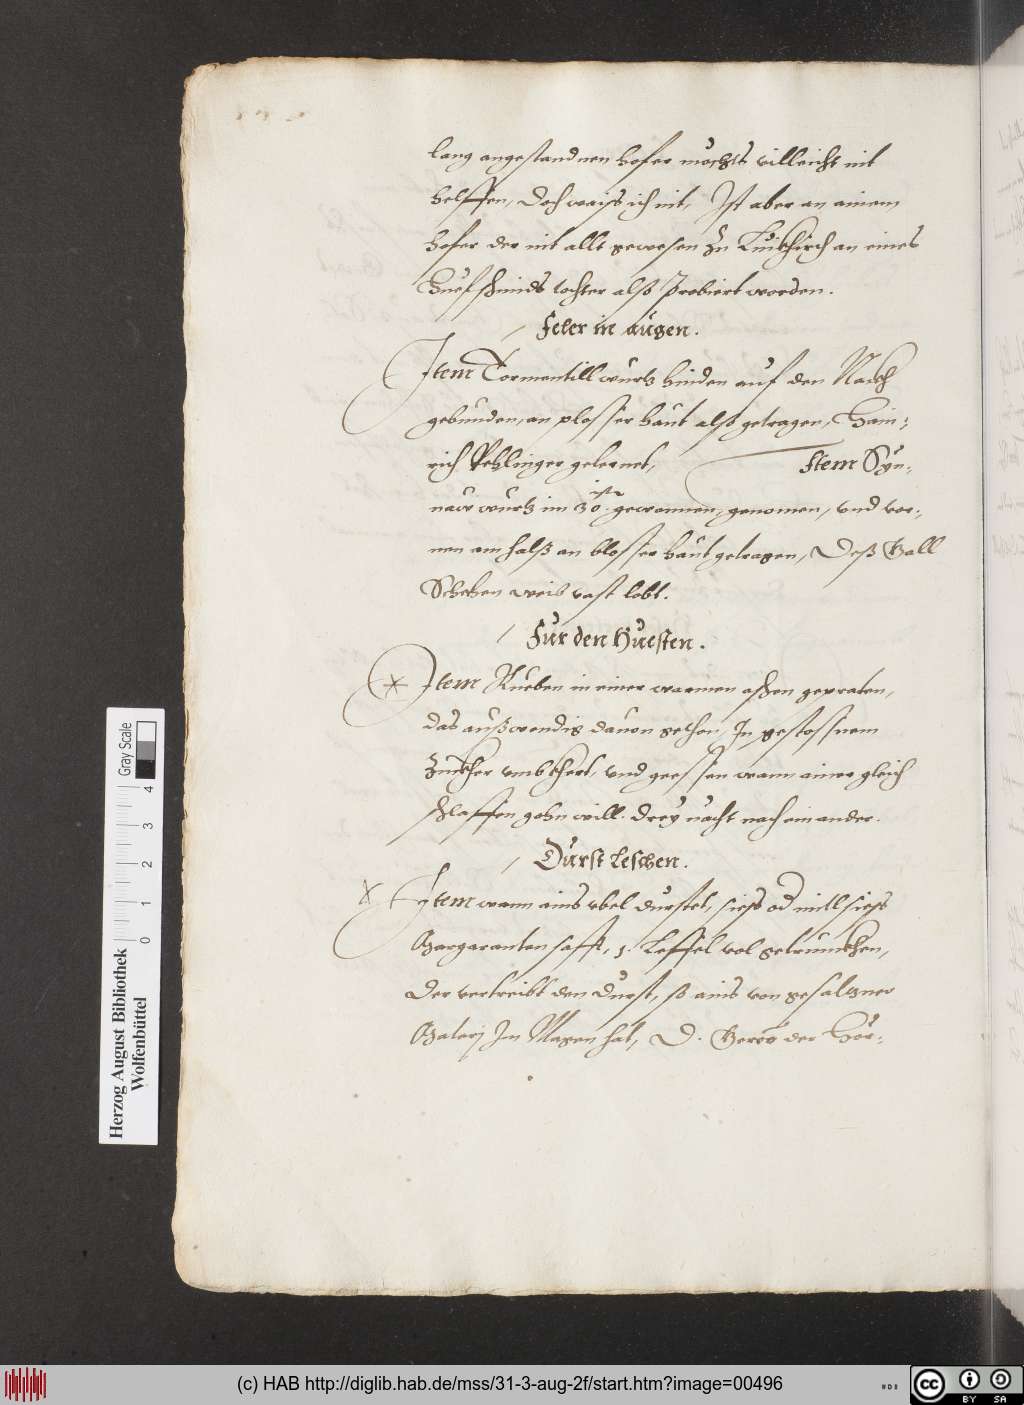 lang angestandnen hofer möchts villeicht nit
helffen, doch waiß ich nit, Ist aber an ainem
hofer der nit allt gewesen zu Leukhirch an eines
Huefschmids tochter alß probiert worden.
Feler in augen.
Item Tormentill wurtz hinden auf den Nackh
gebunden, an plosser haut alß getragen, Hain-
rich Pehlinger gelernet, Item Syn-
naw wurtz im 30.isten gewonnen, genomen, vnd vor-
nen am halß an blosser haut getragen, Deß Gall
weib vast lobt.
Für den Huesten.
Item Rueben in einer warmen aschen gepraten,
das außwendig dauon gethon, In gestossnem
Zuckher vmbkhert, vnd geessen wann ainer gleich
schlaffen gehn will. drey nächt nach einander.
Durst leschen.
Item wann ains vbel durstet, siess od mitl siess
Margaranten safft, 1. Leffel vol getrunckhen,
der vertreibt den durst, so ains von gesaltzner
Matery Im Magen hat, D. der Her-
Herzog August Bibliothek
Wolfenbüttel
0 1 2 3 4
Gray Scale
(c) HAB http://diglib.hab.de/mss/31-3-aug-2f/start.htm?image=00496
cc BY SA